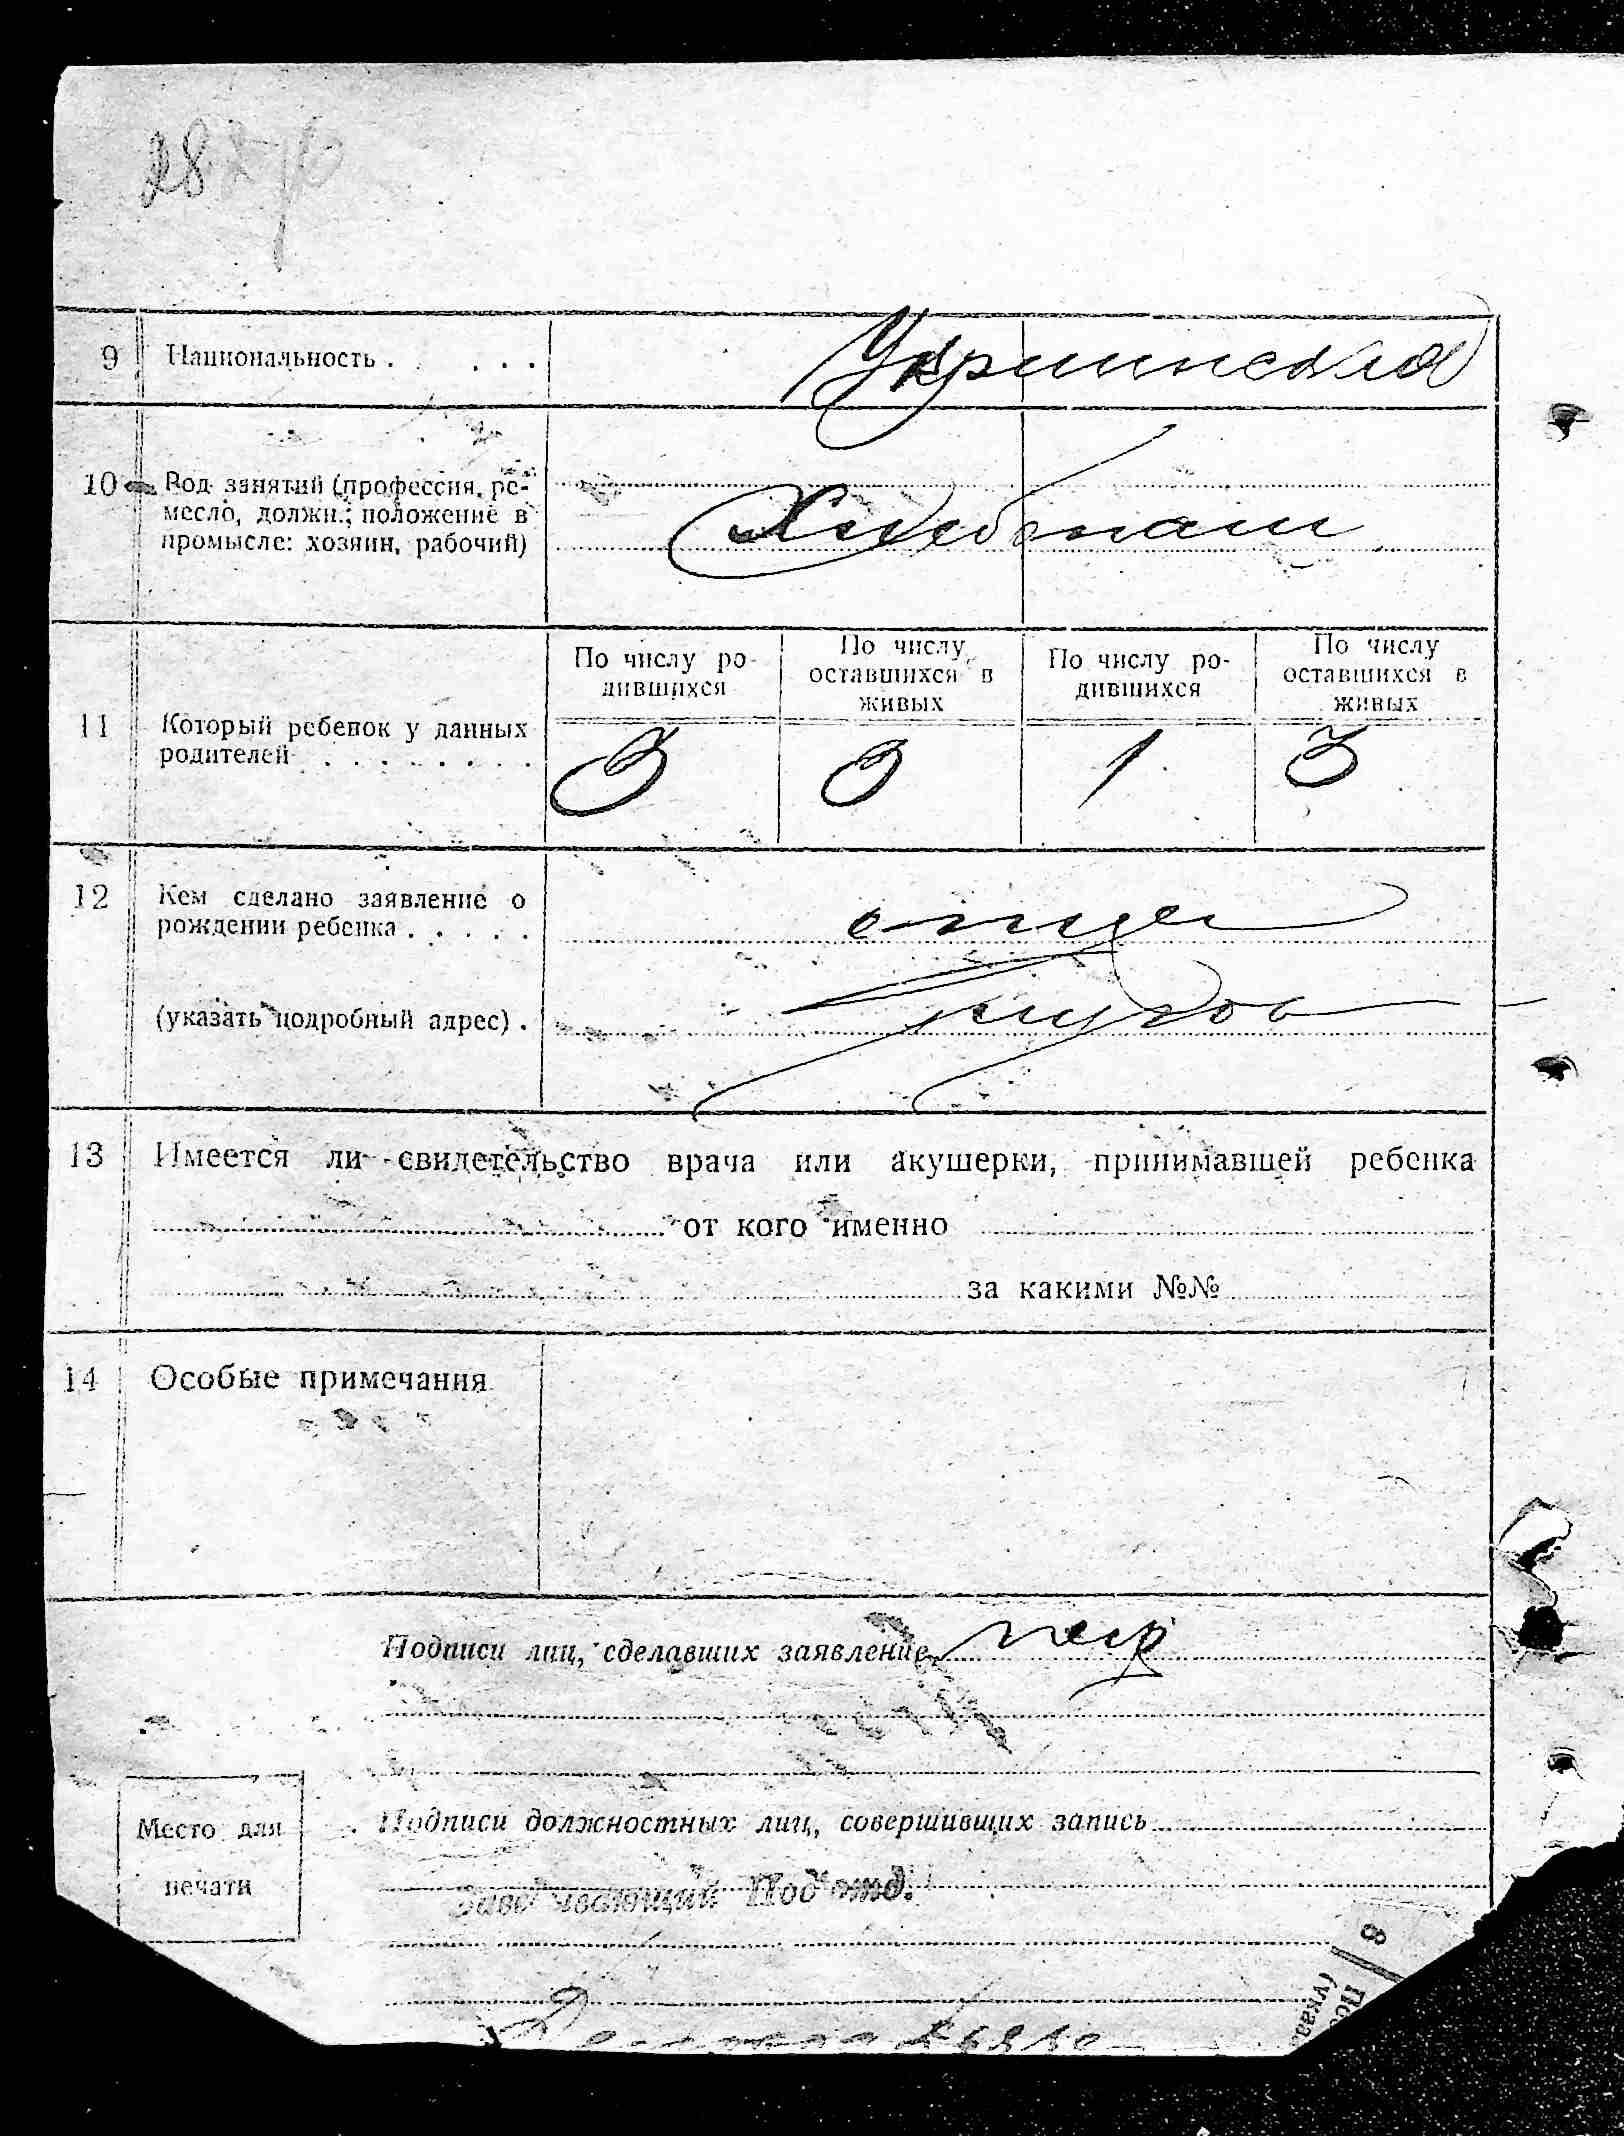 28
9 Национальность . . . . . Украинская
10 Род занятий (профессия, ре-
месло, должн.; положение в
промысле: хозяин, рабочий)
Хлебопаш
По числу ро-
дившихся
По числу
оставшихся в
живых
По числу ро-
дившихся
По числу
оставшихся в
живых
11 Который ребенок у данных
родителей . . . . . . . . .
3 3 1 3
12 Кем сделано заявление о
рождении ребенка . . . . .
отцем
(указать подробный адрес) .
13 Имеется ли свидетельство врача или акушерки, принимавшей ребенка
от кого именно
за какими №№
14 Особые примечания
Подписи лиц, сделавших заявление
Место для
печати
Подписи должностных лиц, совершивших запись
Заведывающий Под'отд.
8